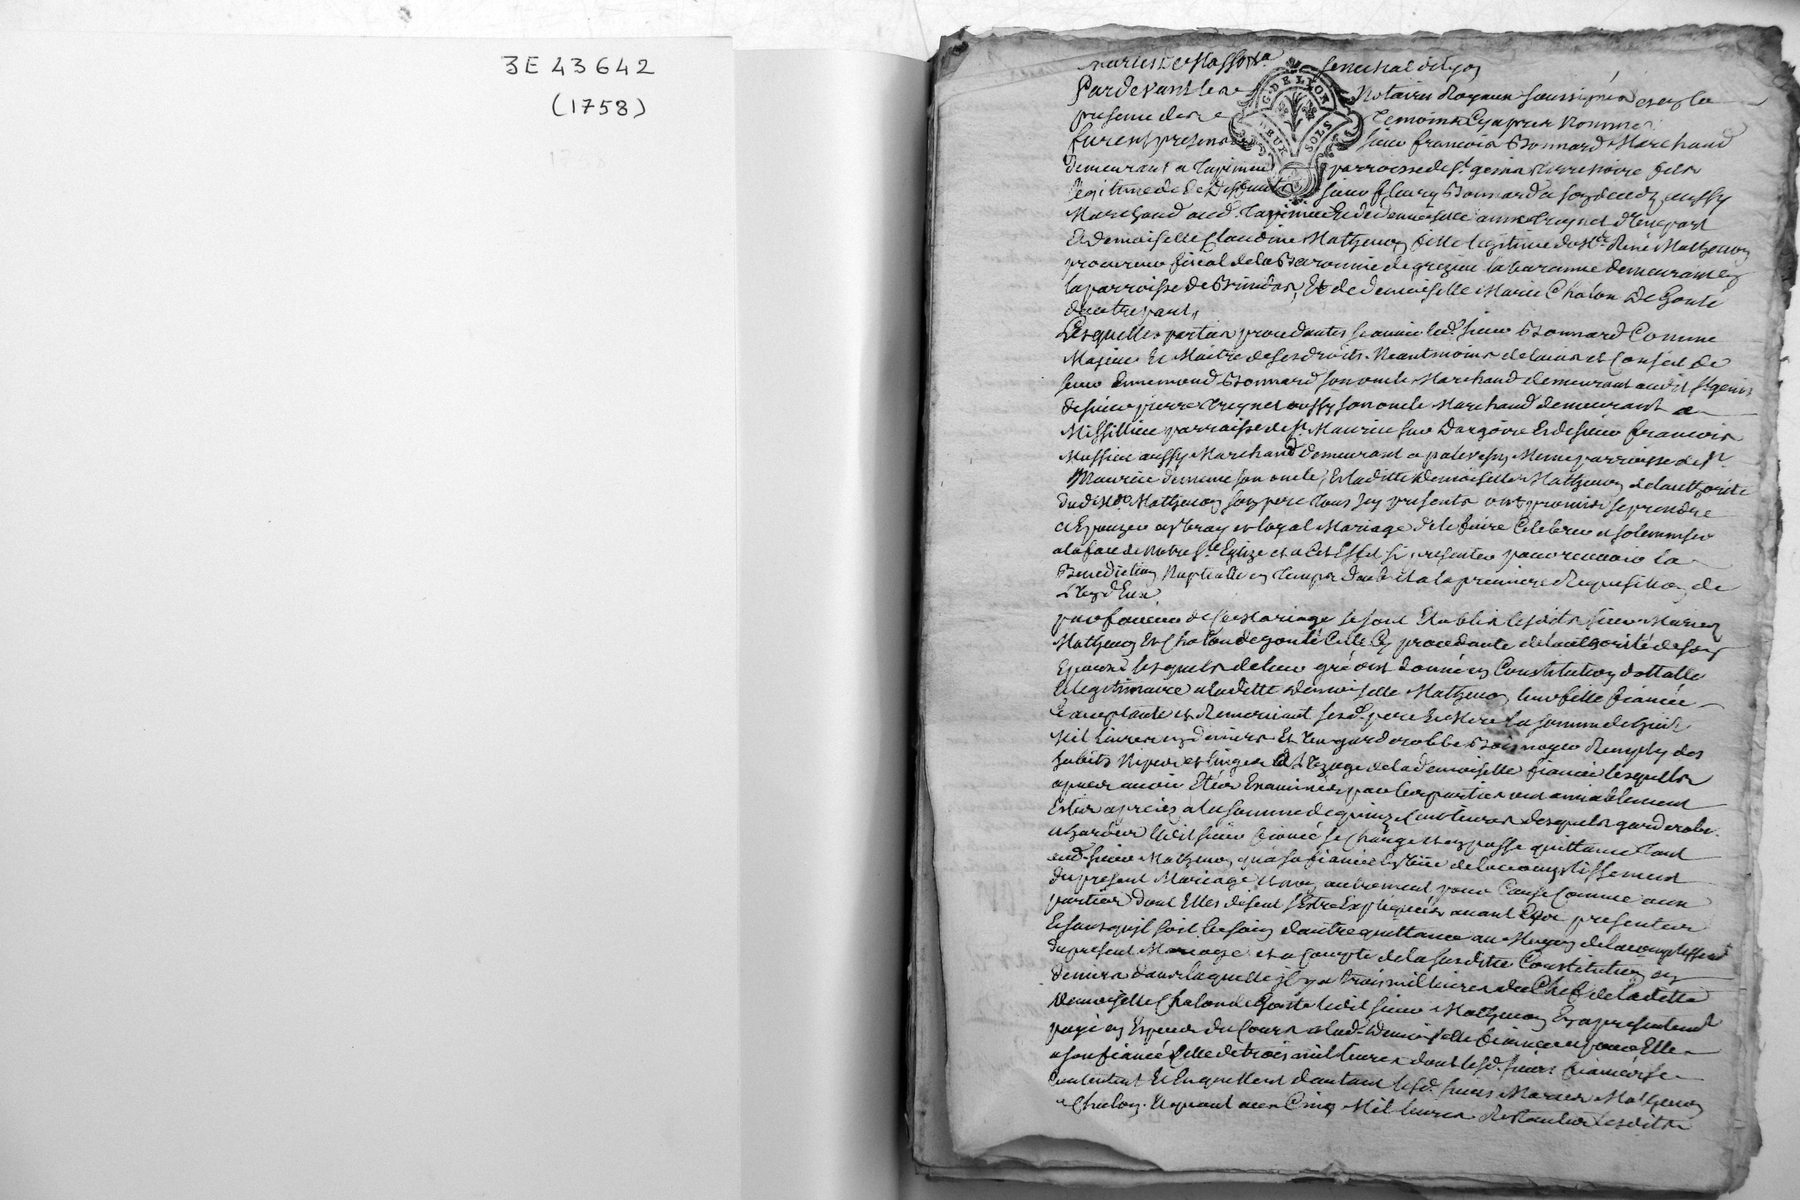 3E 43642
(1758)
G. DE LYON
DEUX SOLS
Senechal de Lyon
Pardevant le Notaire Royaux soussignés et en la
presence des Temoins Cy apres Nommés
furent presents sieur francois Bonnard Marchand
demeurant a parroisse de St. genis terrenoire fils
legitime de deffunt sieur fleury Bonnard a son deced aussy
Marchand aud. et de demoiselle anne treynet d'une part
Et demoiselle Claudine Mathevon fille legitime de Me. René Mathevon
procureur fiscal de la Baronnie de grezieu la varenne demeurant en
la parroisse de Brindas, Et de demoiselle Marie Chalon De Gonté
d'autre part,
Lesquelles parties procedantes scavoir led. sieur Bonnard Comme
Majeur et Maitre de ses droits. Neantmoins de l'avis et Conseil de
sieur Ennemond Bonnard son oncle Marchand demeurant audit St. genis
de sieur pierre treynet aussy son oncle Marchand demeurant a
Missillieu parroisse de St. Maurice sur Dargoire Et de sieur francois
Massier aussy Marchand demeurant a Meme parroisse de St.
Maurice de meme son oncle, Et laditte demoiselle Mathevon de l'authorité
dudit Me. Mathevon son pere tous icy presents ont promis se prendre
et Epouzer en vray et loyal Mariage et le faire Celebrer et solemniser
a la face de Notre Ste. Eglize et a Cet Effet s'y presenter pour recevoir la
Benediction Nuptialle en temps deub et a la premiere Requisition de
l'un d'Eux
pour faveur de Ce Mariage se sont Etablis lesdits sieur Mariez
Mathevon et Chalon de gonté Celle Cy procedante de l'authorité de son
Epoux lesquels de leur gré ont donné en Constitution dottalle
et legitimaire a laditte demoiselle Mathevon leur fille fiancée
Acceptante et Remerciant sesd. pere Et Mere la somme de huit
Mil livres en deniers Et un garderobbe Bois noyer Remply des
habits Nipes et linges a l'uzage de la demoiselle fiancée lesquels
apres avoir Eté Examinés par les parties ont amiablement
Estés apreciés a la somme de quinze Cent livres desquels garderobe
et hardes ledit sieur fiancé se Charge et en passe quittance tant
aud. sieur Mathevon qu'a sa fiancée de l'accomplissement
du present Mariage et non autrement pour Cause Comme aux
parties dont Elles disent s'Estre Expliquées avant Ces presentes
Et sans qu'il soit besoin d'autre quittance au Moyen de l'accomplissement
du present Mariage et a Compte de la susditte Constitution en
deniers dans laquelle il y a trois mil livres du Chef de laditte
Demoiselle Chalon de Gonté ledit sieur Mathevon En a presentement
payé en Especes du Cours a lad. demoiselle fiancée et pour Elle
a son fiancé Celle de trois mil livres dont lesd. sieurs fiancés se
Contentent Et En quittent d'autant lesd. sieurs Mariés Mathevon
et Chalon. Et quant aux Cinq Mil livres Restantes lesdits